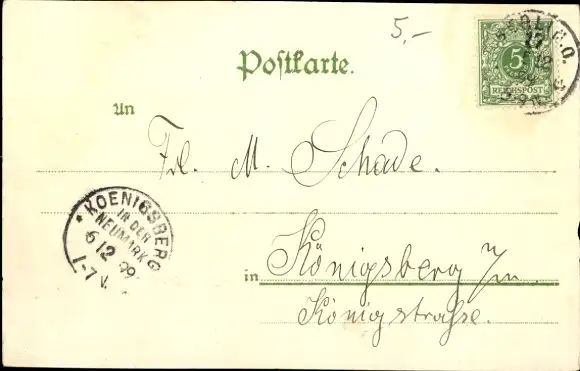 5,-
Postkarte.
5
REICHSPOST
BERLIN.O.
An
Frl. M. Schade.
* KOENIGSBERG
IN DER
NEUMARK
6 12 99
1-7 V.
in Königsberg N/m.
Königstraße.